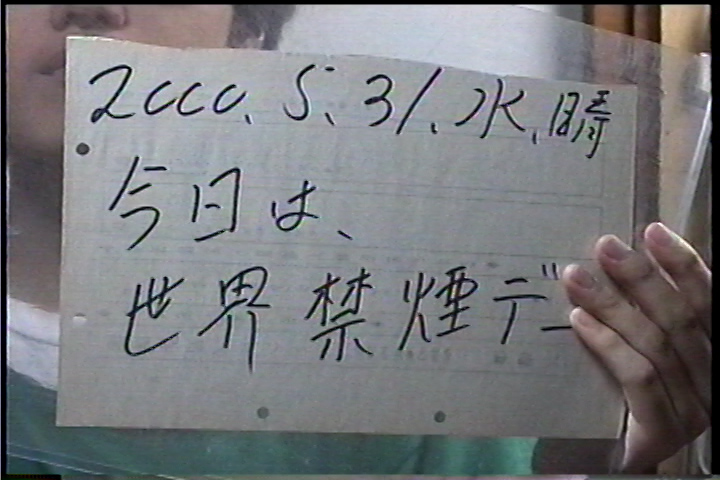 2000、5、31、水、晴
今日は、
世界禁煙デ